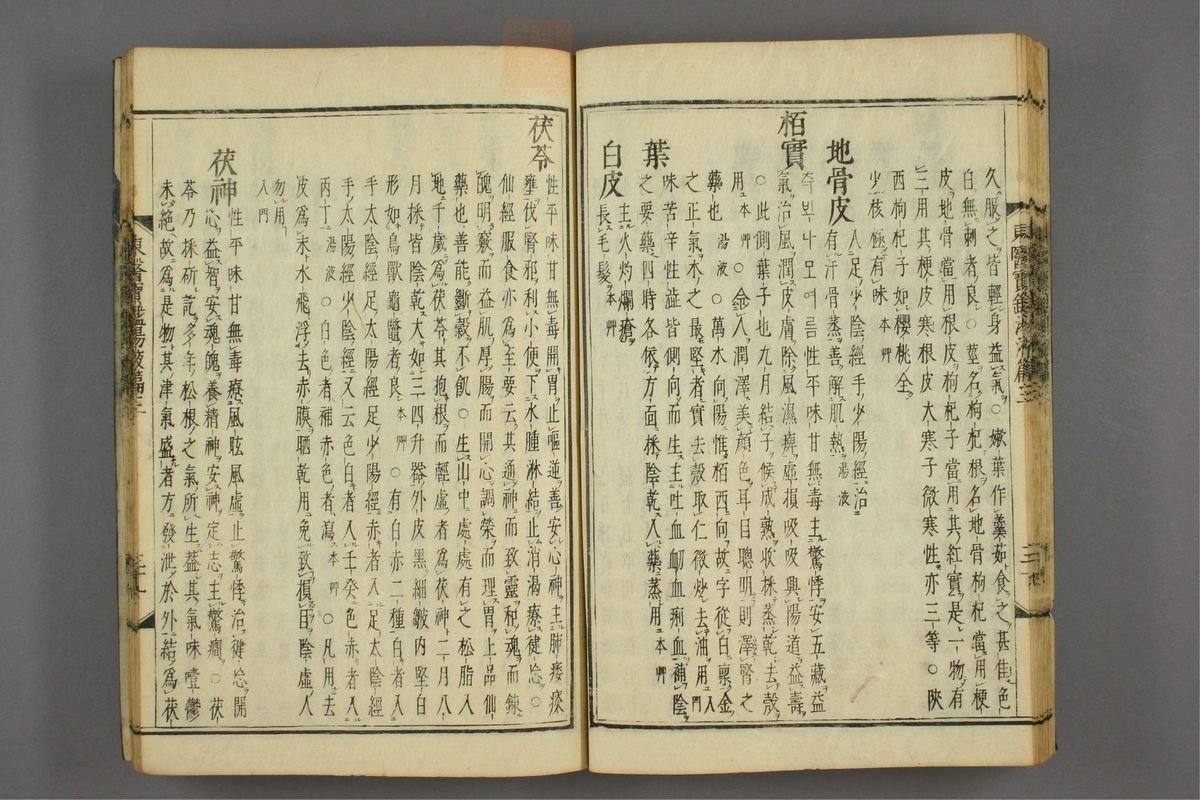 久服之皆輕身益氣○嫩葉作羹茹食之甚佳色
白無刺者良○莖名枸杞根名地骨枸杞當用梗
皮地骨當用根皮枸杞子當用其紅實是一物有
三用其梗皮寒根皮大寒子微寒性亦三等○陝
西枸杞子如櫻桃全
少核極有味本艸
地骨皮
入足少陰經手少陽經治
有汗骨蒸善解肌熱湯液
栢實
측빅나모여름性平味甘無毒主驚悸安五藏益
氣治風潤皮膚除風濕痺虛損吸吸興陽道益壽
○此側葉子也九月結子候成熟收採蒸乾去殼
用本艸○金入潤澤美顏色耳目聰明則澤腎之
藥也湯液○萬木向陽惟栢西向故字從白稟金
之正氣木之最堅者實去殼取仁微炒去油用入門
葉
味苦辛性澁皆側向而生主吐血衄血痢血補陰
之要藥四時各依方面採陰乾入藥蒸用本艸
白皮
主火灼爛瘡
長毛髮本艸
茯苓
性平味甘無毒開胃止嘔逆善安心神主肺痿痰
壅伐腎邪利小便下水腫淋結止消渴療健忘○
仙經服食亦爲至要云其通神而致靈和魂而鍊
魄明竅而益肌厚腸而開心調榮而理胃上品仙
藥也善能斷穀不飢○生山中處處有之松脂入
地千歲爲茯苓其抱根而輕虛者爲茯神二月八
月採皆陰乾大如三四升器外皮黑細皺內堅白
形如鳥獸龜鼈者良本艸○有白赤二種白者入
手太陰經足太陽經足少陽經赤者入足太陰經
手太陽經少陰經又云色白者入壬癸色赤者入
丙丁湯液○白色者補赤色者瀉本艸○凡用去
皮爲末水飛浮去赤膜晒乾用免致損目陰虛人
勿用
入門
茯神
性平味甘無毒療風眩風虛止驚悸治健忘開
心益智安魂魄養精神安神定志主驚癎○茯
苓乃採斫訖多年松根之氣所生蓋其氣味噎鬱
未絕故爲是物其津氣盛者方發泄於外結爲茯